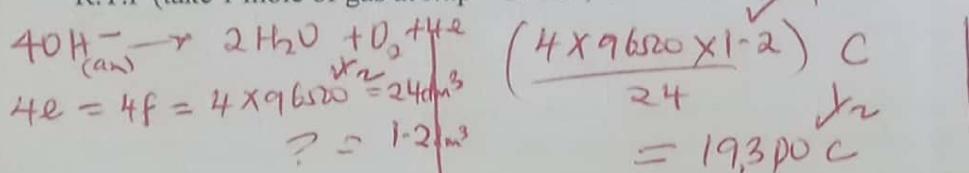 4OH⁻(aq) → 2H₂O + O₂ + 4e
4e = 4f = 4 × 96500 = 24dm³
√½
? = 1.2dm³
(4 × 96500 × 1.2) C
✓
24
√½
= 19,300 C